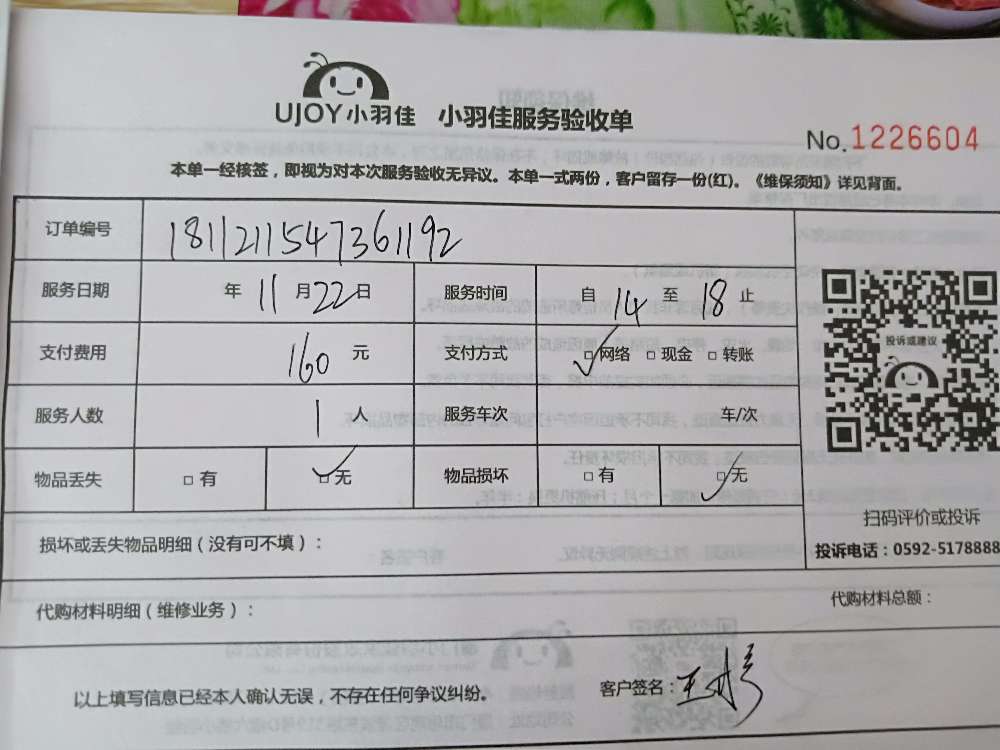 UJOY小羽佳 小羽佳服务验收单
No.1226604
本单一经核签，即视为对本次服务验收无异议。本单一式两份，客户留存一份(红)。《维保须知》详见背面。
订单编号 181121154736192
服务日期 年 11 月 22 日 服务时间 自 14 至 18 止
支付费用 160 元 支付方式 ☑网络 □现金 □转账
服务人数 1 人 服务车次 车/次
物品丢失 □有 ☑无 物品损坏 □有 ☑无
投诉或建议
扫码评价或投诉
损坏或丢失物品明细（没有可不填）：
投诉电话：0592-5178888
代购材料明细（维修业务）： 代购材料总额：
以上填写信息已经本人确认无误，不存在任何争议纠纷。 客户签名：